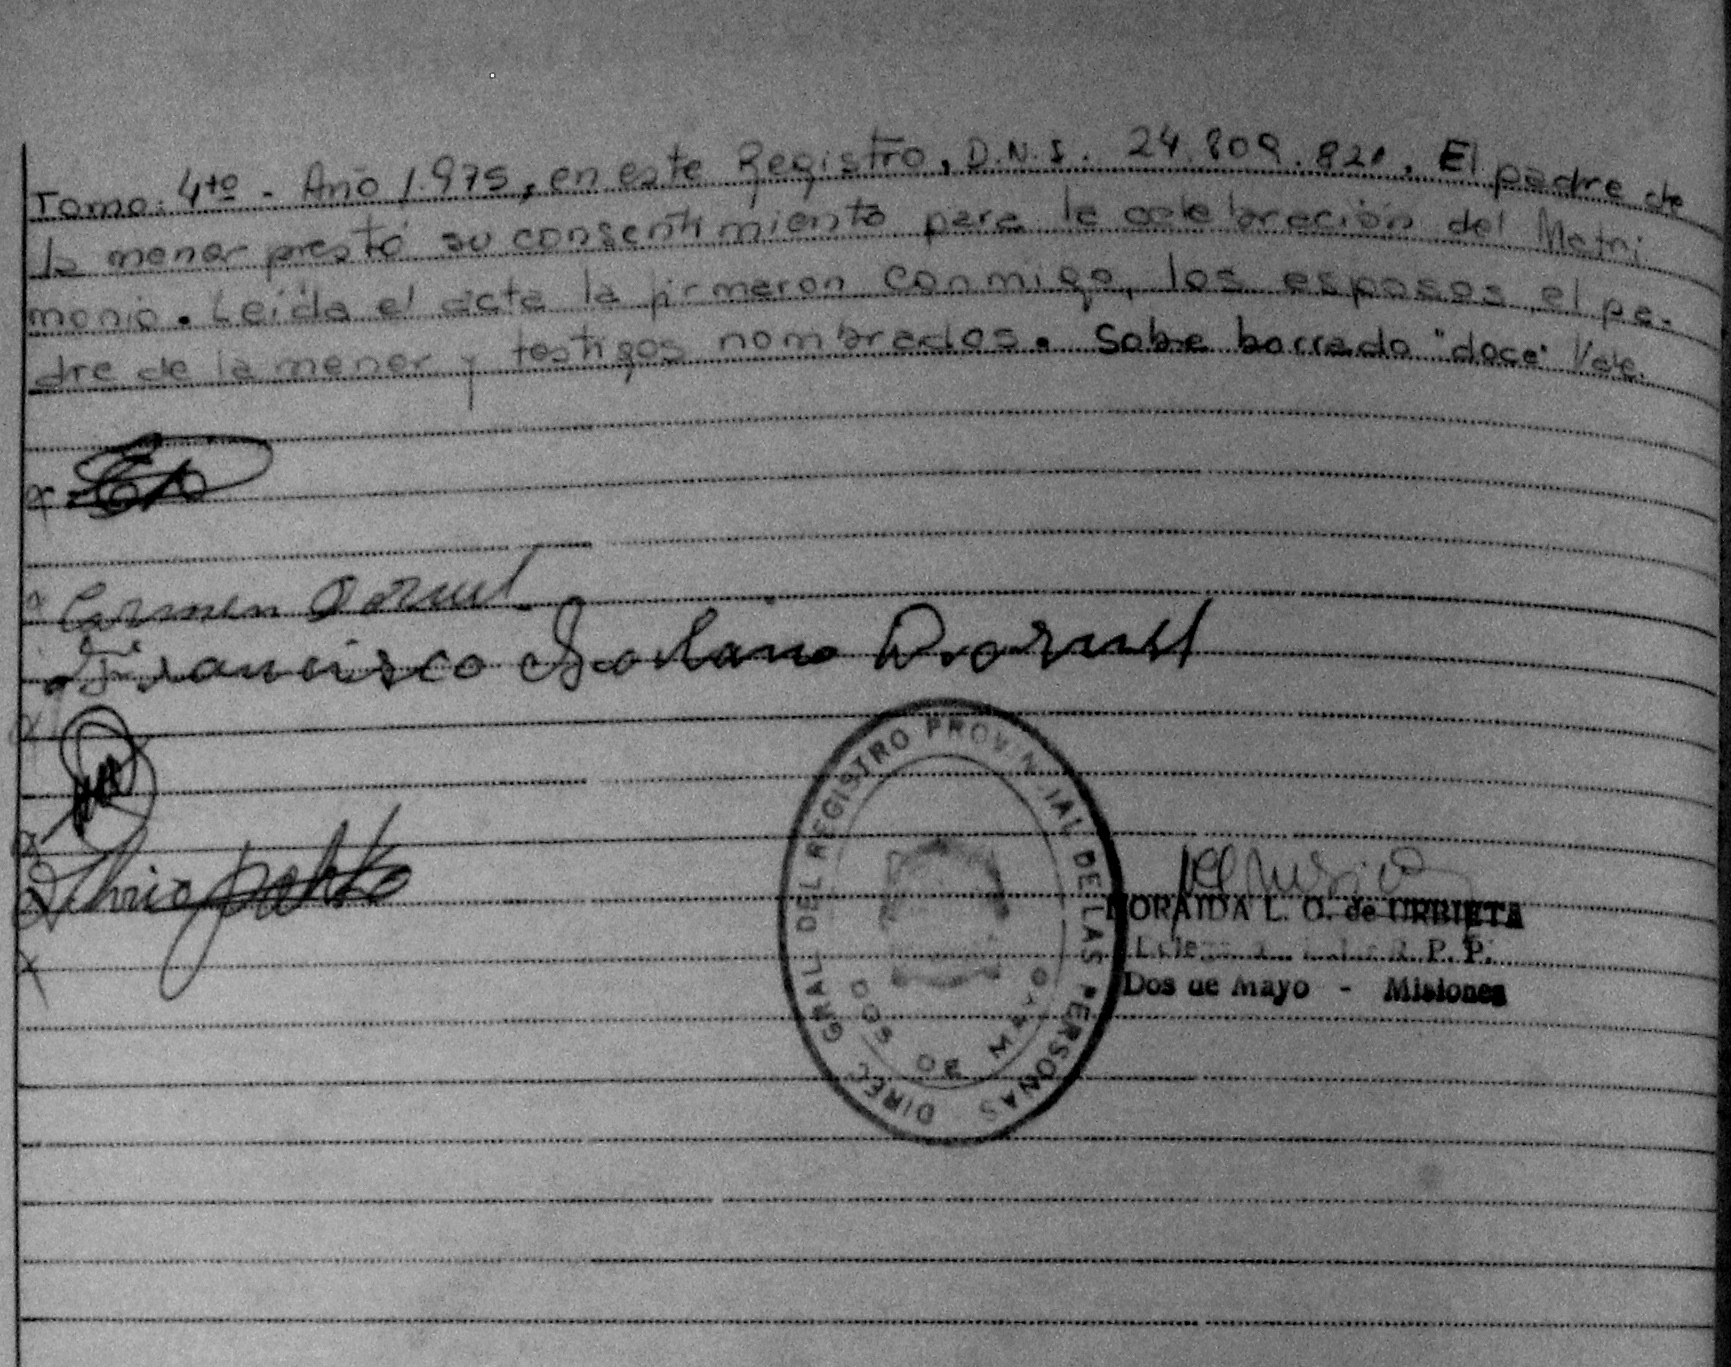 Tomo: 4to - Año 1.975, en este Registro, D.N.I. 24.809.821. El padre de
la menor prestó su consentimiento para la celebración del Matri
monio. Leída el acta la firmaron conmigo, los esposos, el pa-
dre de la menor y testigos nombrados. Sobre borrado "doce" Vale.
Carmen Dornel
Francisco Solano Dornel
DIREC. GRAL. DEL REGISTRO PROVINCIAL DE LAS PERSONAS
DOS DE MAYO
DORAIDA L. O. de URBIETA
R. P. P.
Dos de Mayo - Misiones